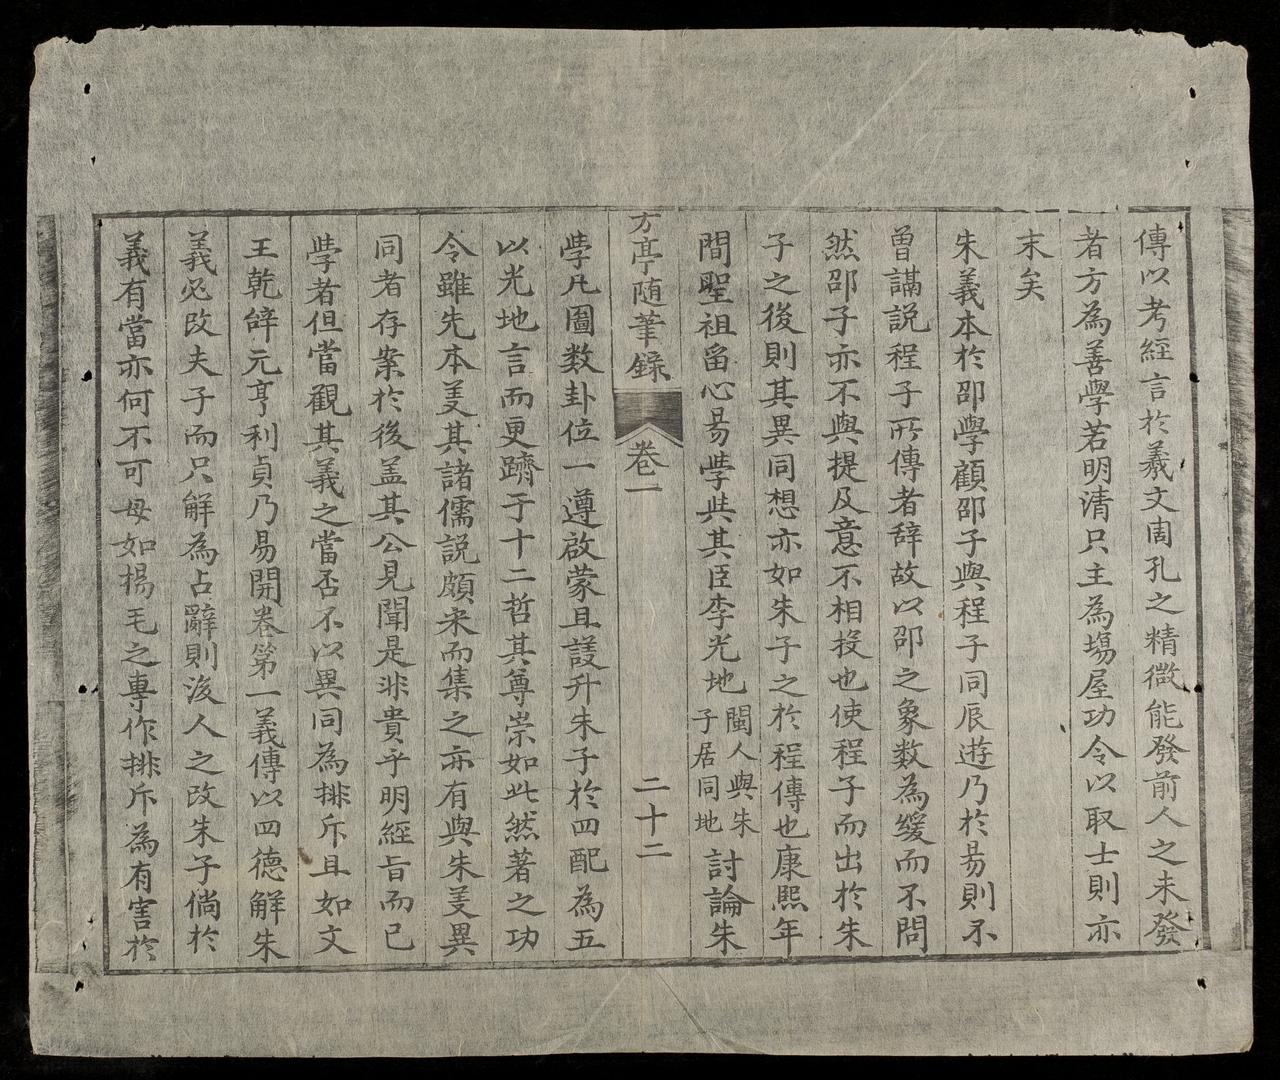 傳以考經言於羲文周孔之精微能發前人之未發
者方為善學若明清只主為場屋功令以取士則亦
末矣
朱義本於邵學顧邵子與程子同辰遊乃於易則不
曾講説程子所傳者辞故以邵之象数為緩而不問
然邵子亦不與提及意不相投也使程子而出於朱
子之後則其異同想亦如朱子之於程傳也康熙年
間聖祖留心易學與其臣李光地閩人與朱子居同地討論朱
方亭随筆錄 卷一 二十二
學凡圖数卦位一遵啟蒙且議升朱子於四配為五
以光地言而更躋于十二哲其尊崇如此然著之功
令雖先本義其諸儒説頗采而集之亦有與朱義異
同者存案於後盖其公見聞是非貴乎明經旨而已
學者但當觀其義之當否不以異同為排斥且如文
王乾辞元亨利貞乃易開卷第一義傳以四德解朱
義必改夫子而只解為占辭則後人之改朱子倘於
義有當亦何不可毋如楊毛之專作排斥為有害於